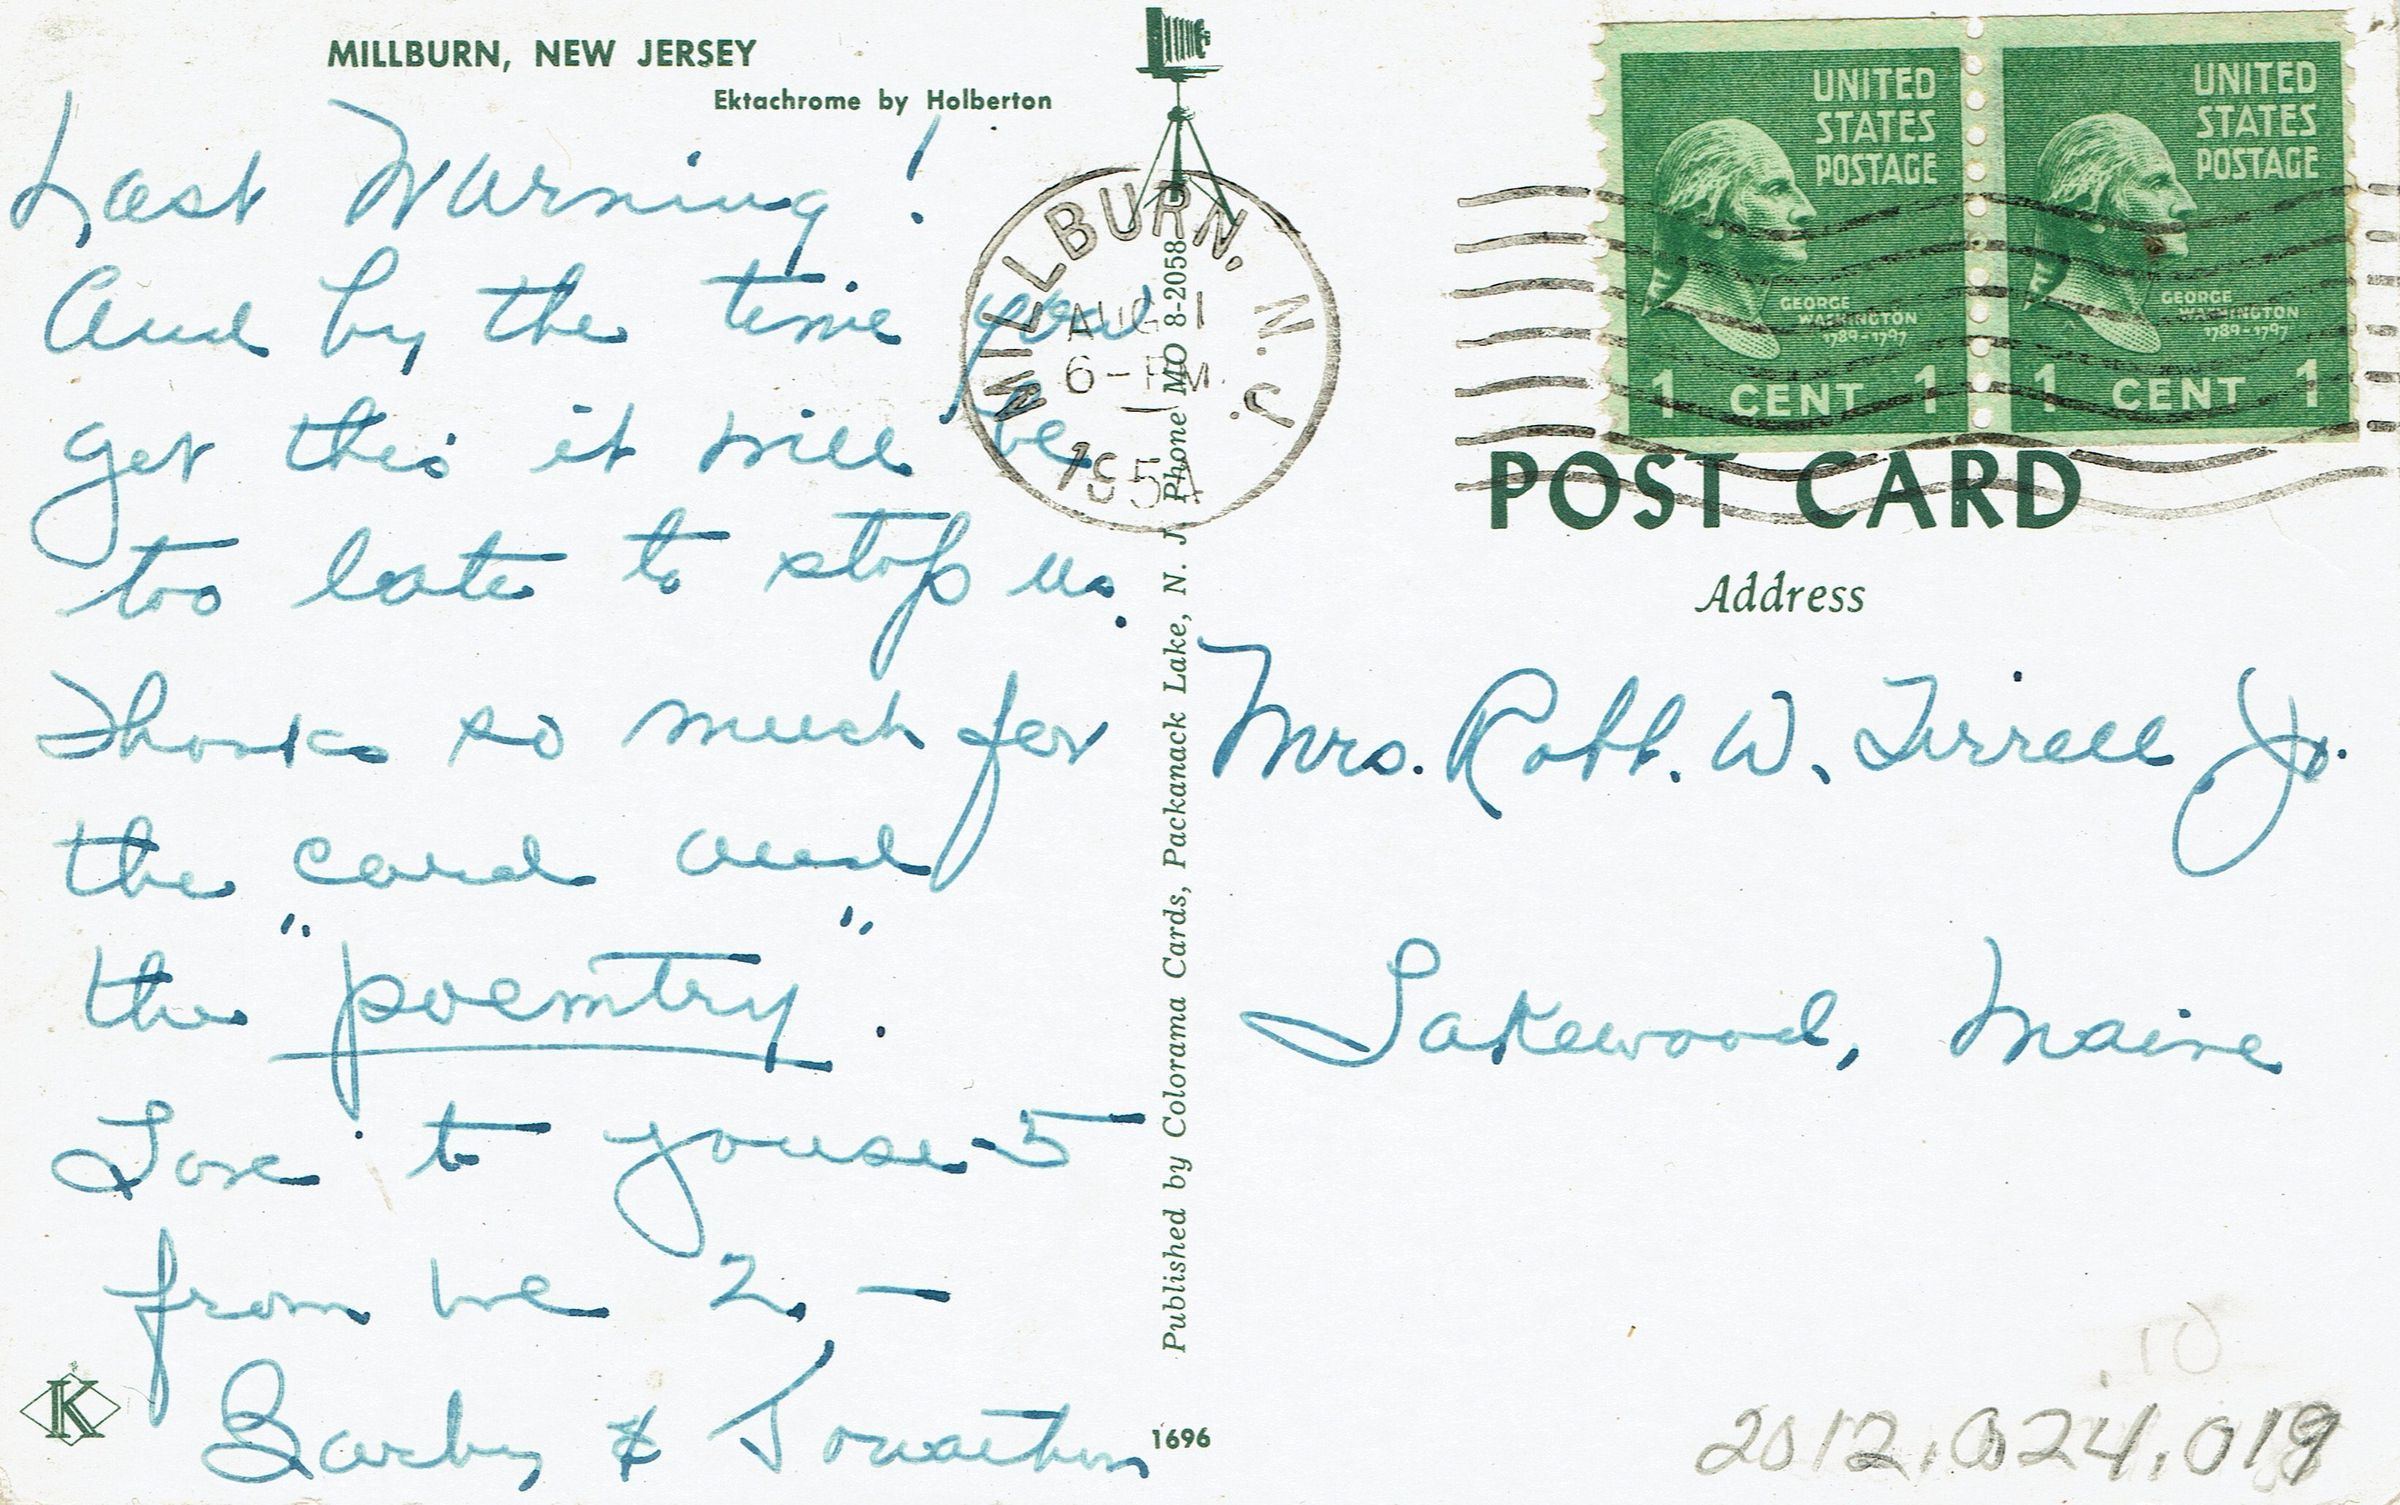 MILLBURN, NEW JERSEY
Ektachrome by Holberton
Last Warning!
And by the time you
get this it will be
too late to stop us.
Thanks so much for
the card and
the "poemtry".
Love to youse 5
from we 2, –
Barby & Jonathan
K
1696
Published by Colorama Cards, Packanack Lake, N. J. Phone MO 8-2058
MILLBURN, N.J.
AUG 1
6 - PM
195
UNITED
STATES
POSTAGE
GEORGE
WASHINGTON
1789-1797
1 CENT 1
UNITED
STATES
POSTAGE
GEORGE
WASHINGTON
1789-1797
1 CENT 1
POST CARD
Address
Mrs. Robt. W. Tirrell Jr.
Lakewood, Maine
.10
2012.024.019